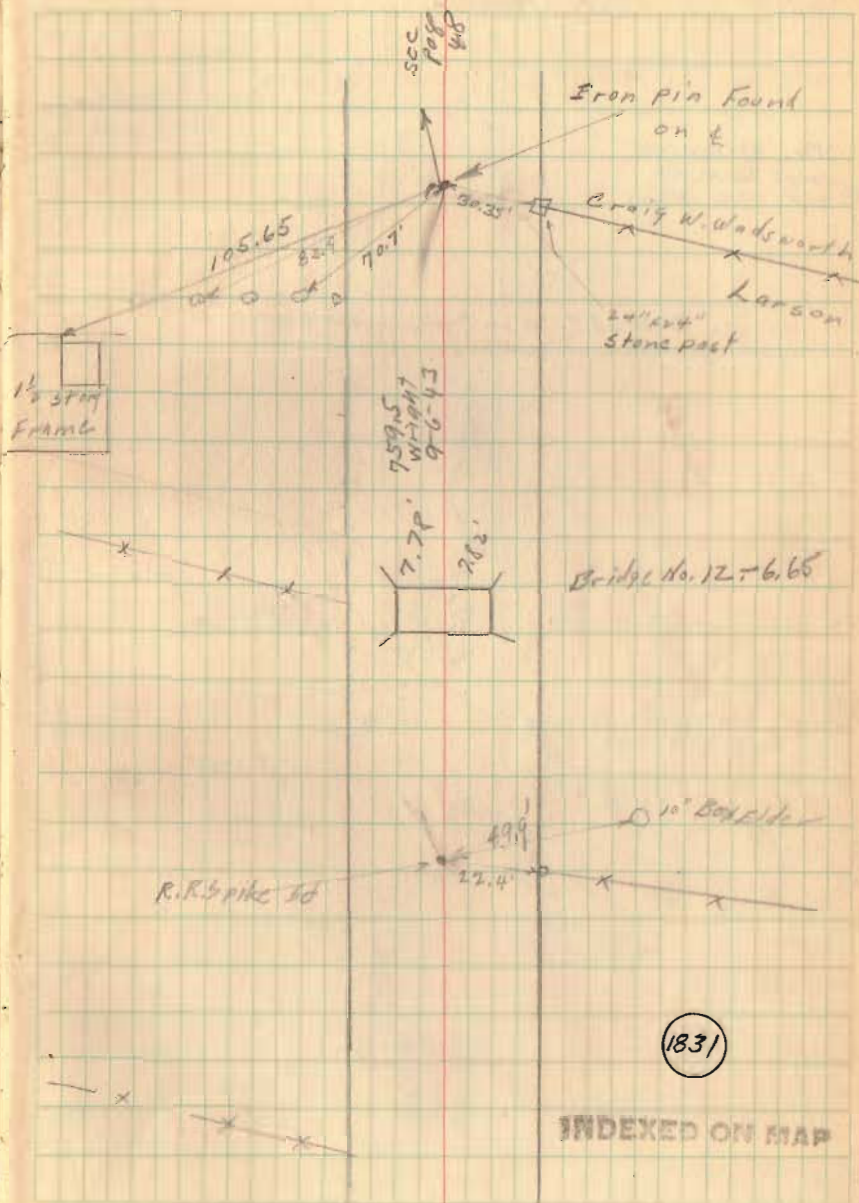 see
page
48
Iron pin Found
on ℄
30.35'
Craig W. Wadsworth
Larson
105.65
82.9
70.7'
24"x24"
Stone post
1½ story
Frame
759.5
Wright
9-6-43
7.78'
7.82'
Bridge No. 12-6.65
10" Box Elder
49.9'
22.4'
R.R. Spike Fd
1831
INDEXED ON MAP